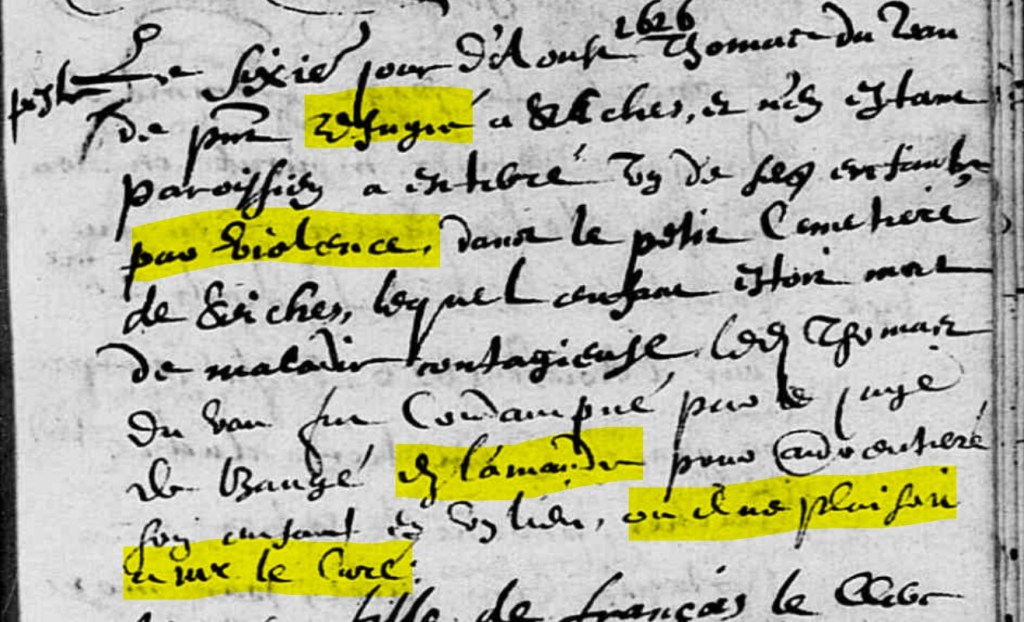 1626
peste Le sixie jour d'Aoust Thomas du Vau
de pnt refugié a Eches, et n'en estant
paroissien a enterré un de ses enfants
par violence, dans le petit Cemetiere
de Eiches, lequel enfant estoit mort
de maladie contagieuse, led Thomas
du vau fut Condampné par le juge
de Baugé en lamande pour avoir enterré
son enfant en un lieu, ou il ne plaisoit
a mr le Curé.
fille de françois le